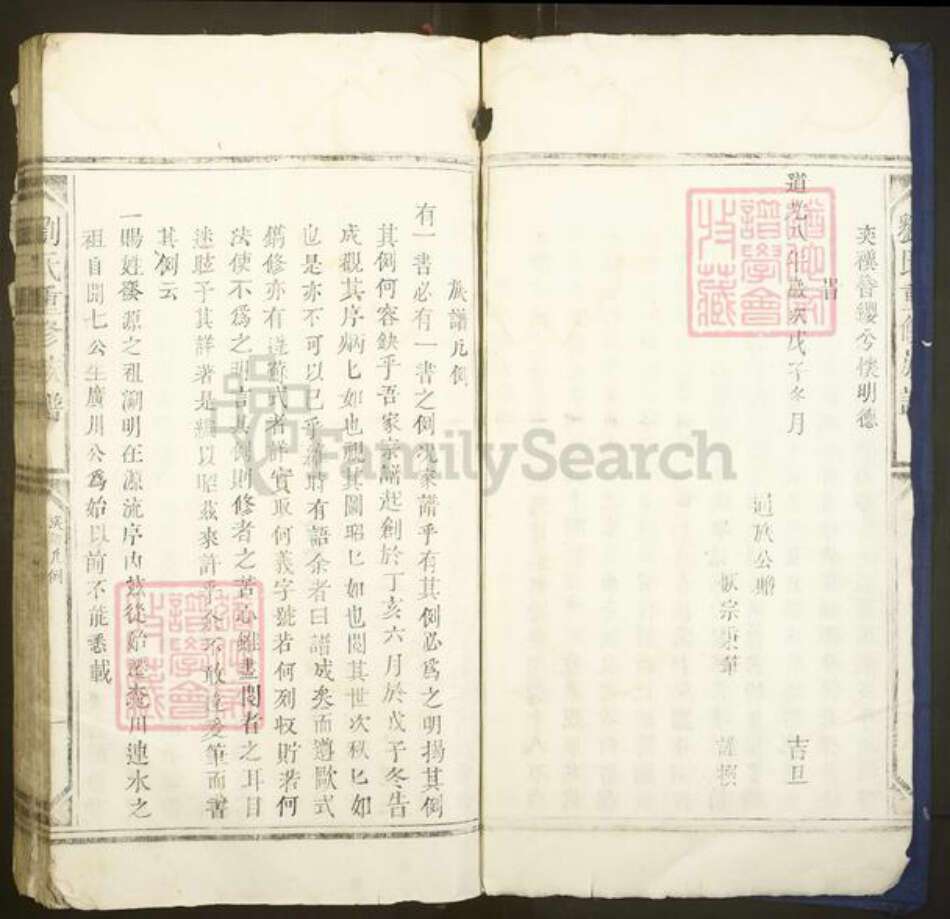 奕禩簪纓兮僕明德
道光八年歲次戊子冬月 吉旦
族譜凡例
有一書必有一書之例况家譜乎有其例必為之明揚其例
其例何容缺乎吾家宗譜起創於丁亥六月於戊子冬告
成觀其序炳匕如也視其圖昭匕如也閱其世次秩匕如
也是亦不可以已乎
時有語余者曰譜成矣而遵歐式
修亦有遵蘇式者詳實取何義字號若何列收貯若何
法使不為之明言其例則修者之苦心雖盡閱者之耳目
迷眩予其詳著是譜以昭茲來許乎余不敢
筆而書
其例云
一賜姓發源之祖淵明在源流序內茲從始
川連水之
祖自開七公生廣川公為始以前不能悉載
劉氏重修族譜
凡例
一
譜學會
收藏
FamilySearch